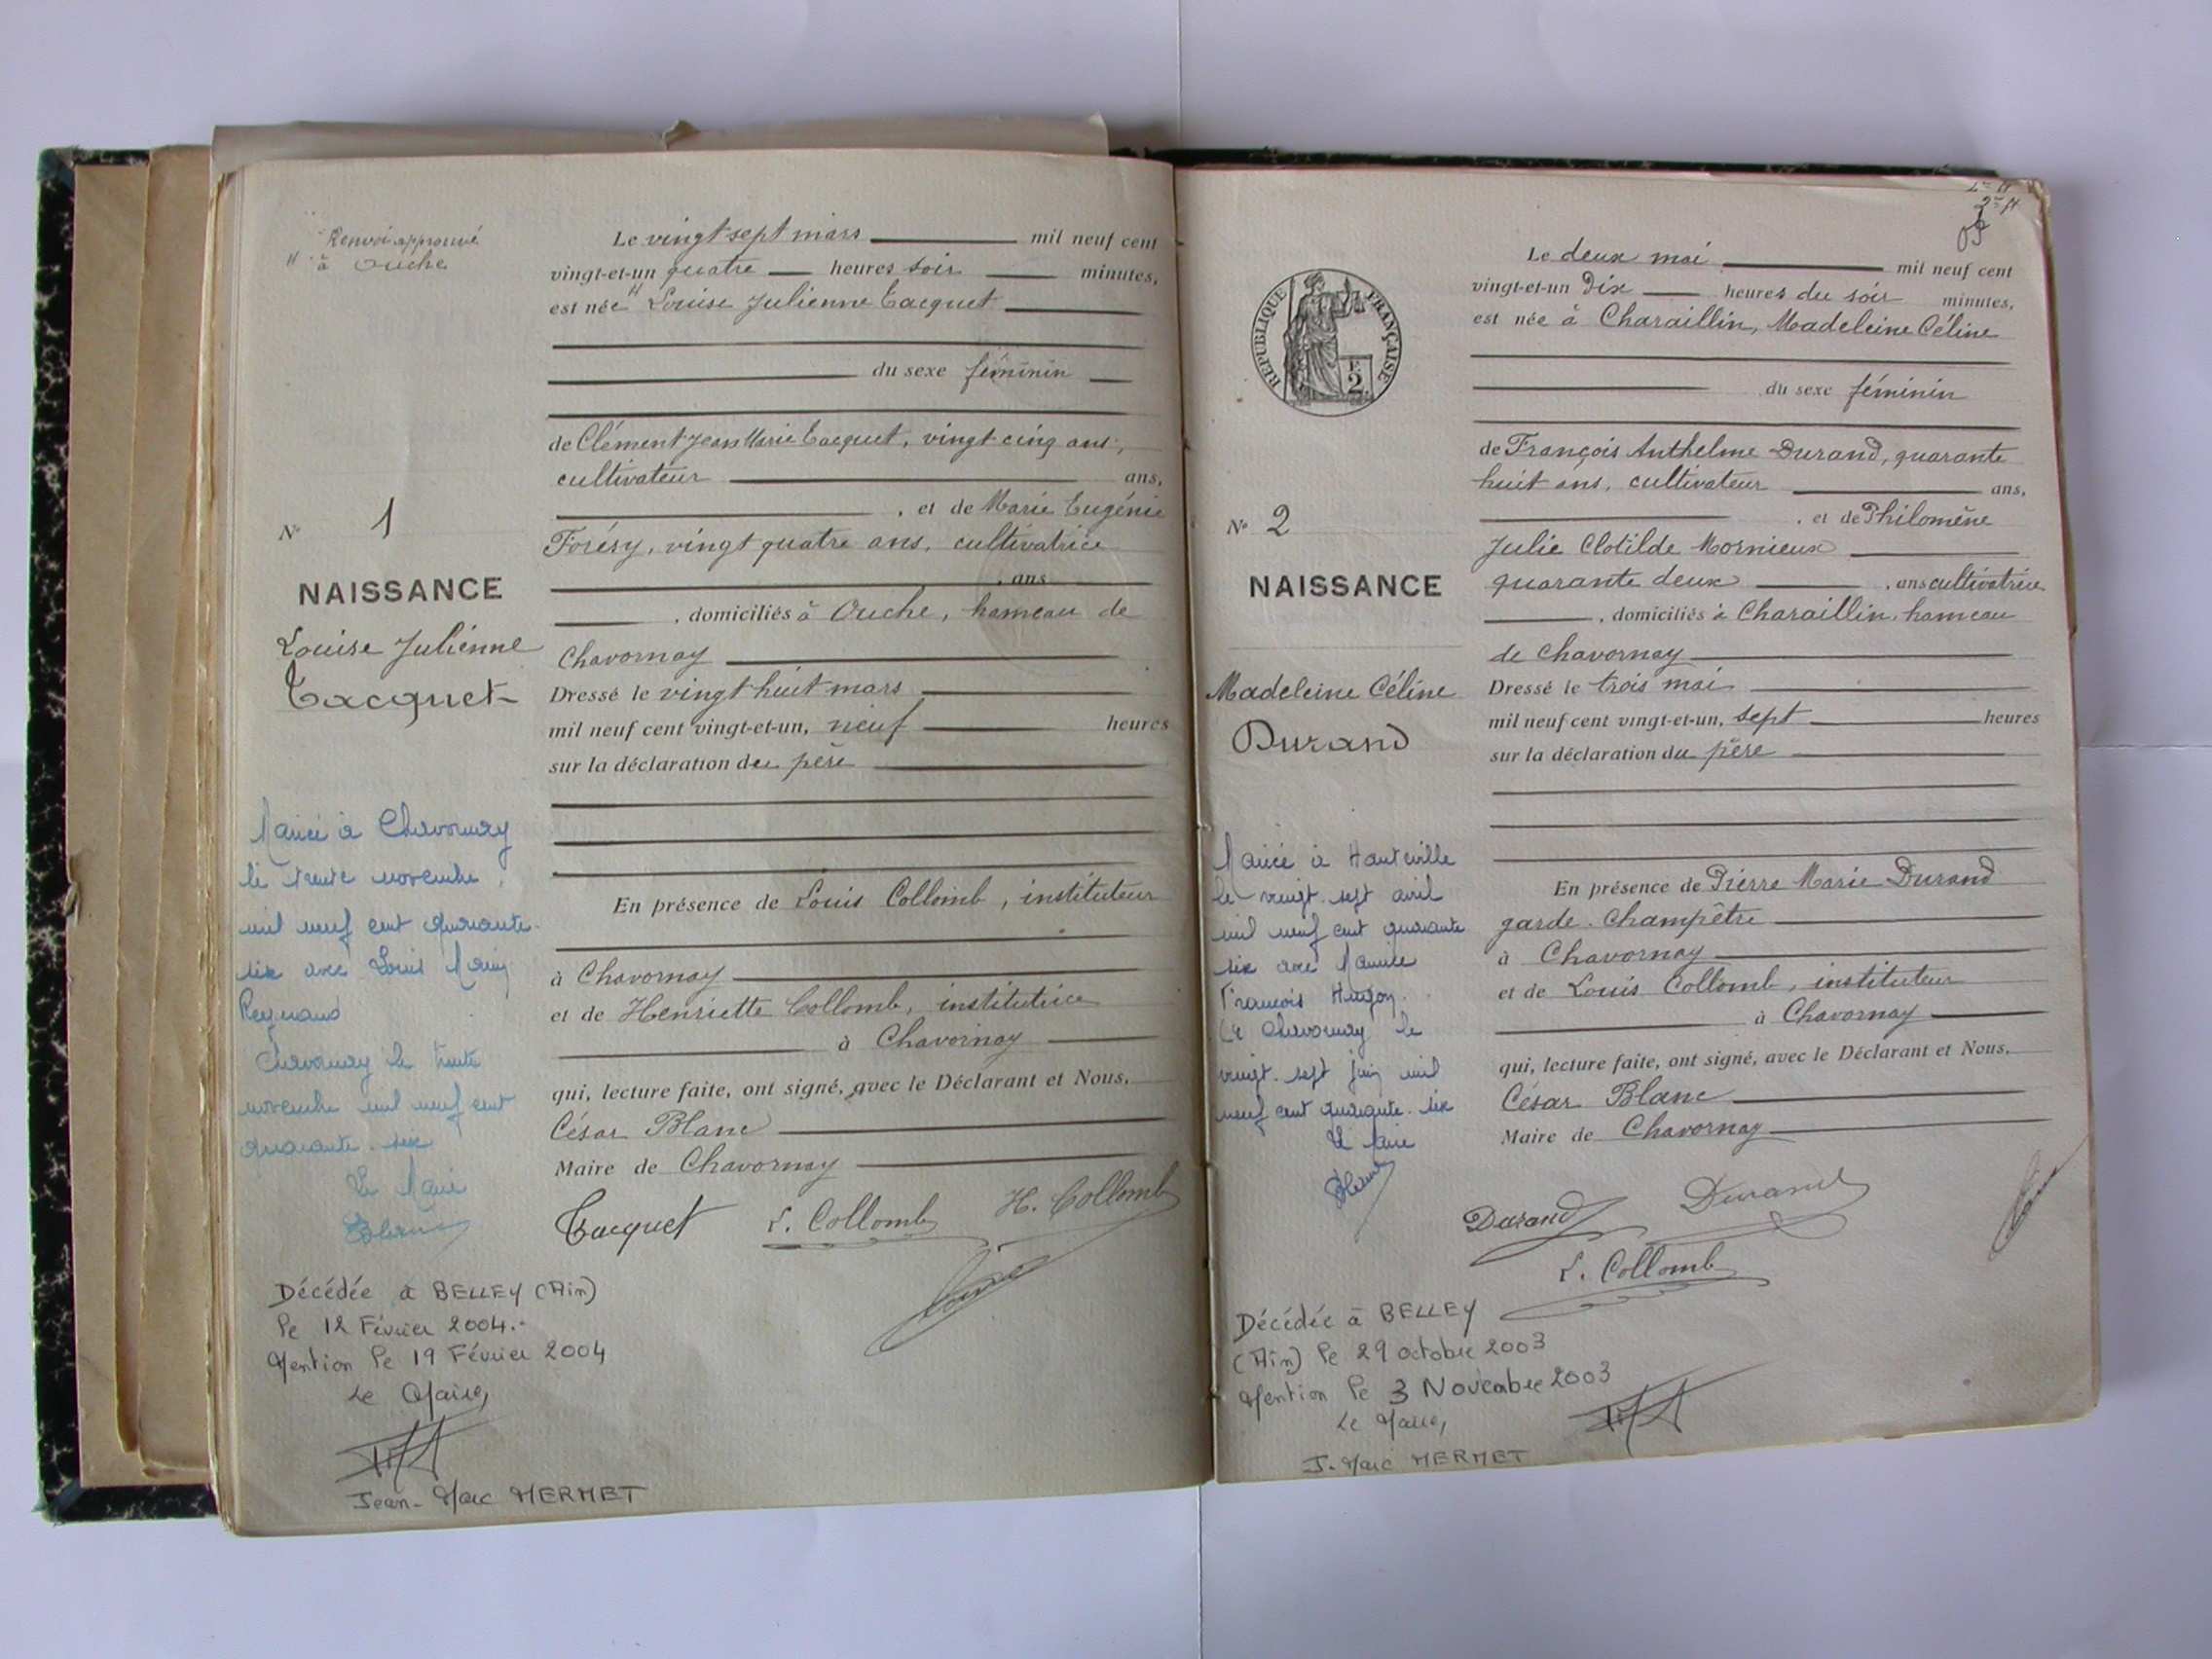 Renvoi approuvé
à Ouche
Le vingt sept mars mil neuf cent
vingt-et-un quatre heures soir minutes,
est née Louise Julienne Tacquet
du sexe féminin
de Clément Jean Marie Tacquet, vingt cinq ans,
cultivateur ans,
, et de Marie Eugénie
Forésy, vingt quatre ans, cultivatrice
, ans
, domiciliés à Ouche, hameau de
Chavornay
Dressé le vingt huit mars
mil neuf cent vingt-et-un, neuf heures
sur la déclaration du père
En présence de Louis Collomb, instituteur
à Chavornay
et de Henriette Collomb, institutrice
à Chavornay
qui, lecture faite, ont signé, avec le Déclarant et Nous,
César Blanc
Maire de Chavornay
Tacquet L. Collomb H. Collomb
N° 1
NAISSANCE
Louise Julienne
Tacquet
Mariée à Chavornay
le trente novembre
mil neuf cent quarante-
six avec Louis
Reynaud
Chavornay le trente
novembre mil neuf cent
quarante-six
Le Maire
Blanc
Décédée à BELLEY (Ain)
le 12 Février 2004.-
Mention le 19 Février 2004
Le Maire,
Jean-Marc MERMET
REPUBLIQUE FRANÇAISE
2
Le deux mai mil neuf cent
vingt-et-un Dix heures du soir minutes,
est née à Charaillin, Madeleine Céline
du sexe féminin
de François Anthelme Durand, quarante
huit ans, cultivateur ans,
, et de Philomène
Julie Clotilde Mornieux
quarante deux , ans cultivatrice
, domiciliés à Charaillin, hameau
de Chavornay
Dressé le trois mai
mil neuf cent vingt-et-un, sept heures
sur la déclaration du père
En présence de Pierre Marie Durand
garde-Champêtre
à Chavornay
et de Louis Collomb, instituteur
à Chavornay
qui, lecture faite, ont signé, avec le Déclarant et Nous,
César Blanc
Maire de Chavornay
Durand Durand
L. Collomb
N° 2
NAISSANCE
Madeleine Céline
Durand
Mariée à Hauteville
le vingt-sept avril
mil neuf cent quarante
six avec Maurice
François Hugon.
Chavornay le
vingt-sept juin mil
neuf cent quarante-six
Le Maire
Blanc
Décédée à BELLEY
(Ain) le 29 octobre 2003
Mention le 3 Novembre 2003
Le Maire,
J-Marc MERMET